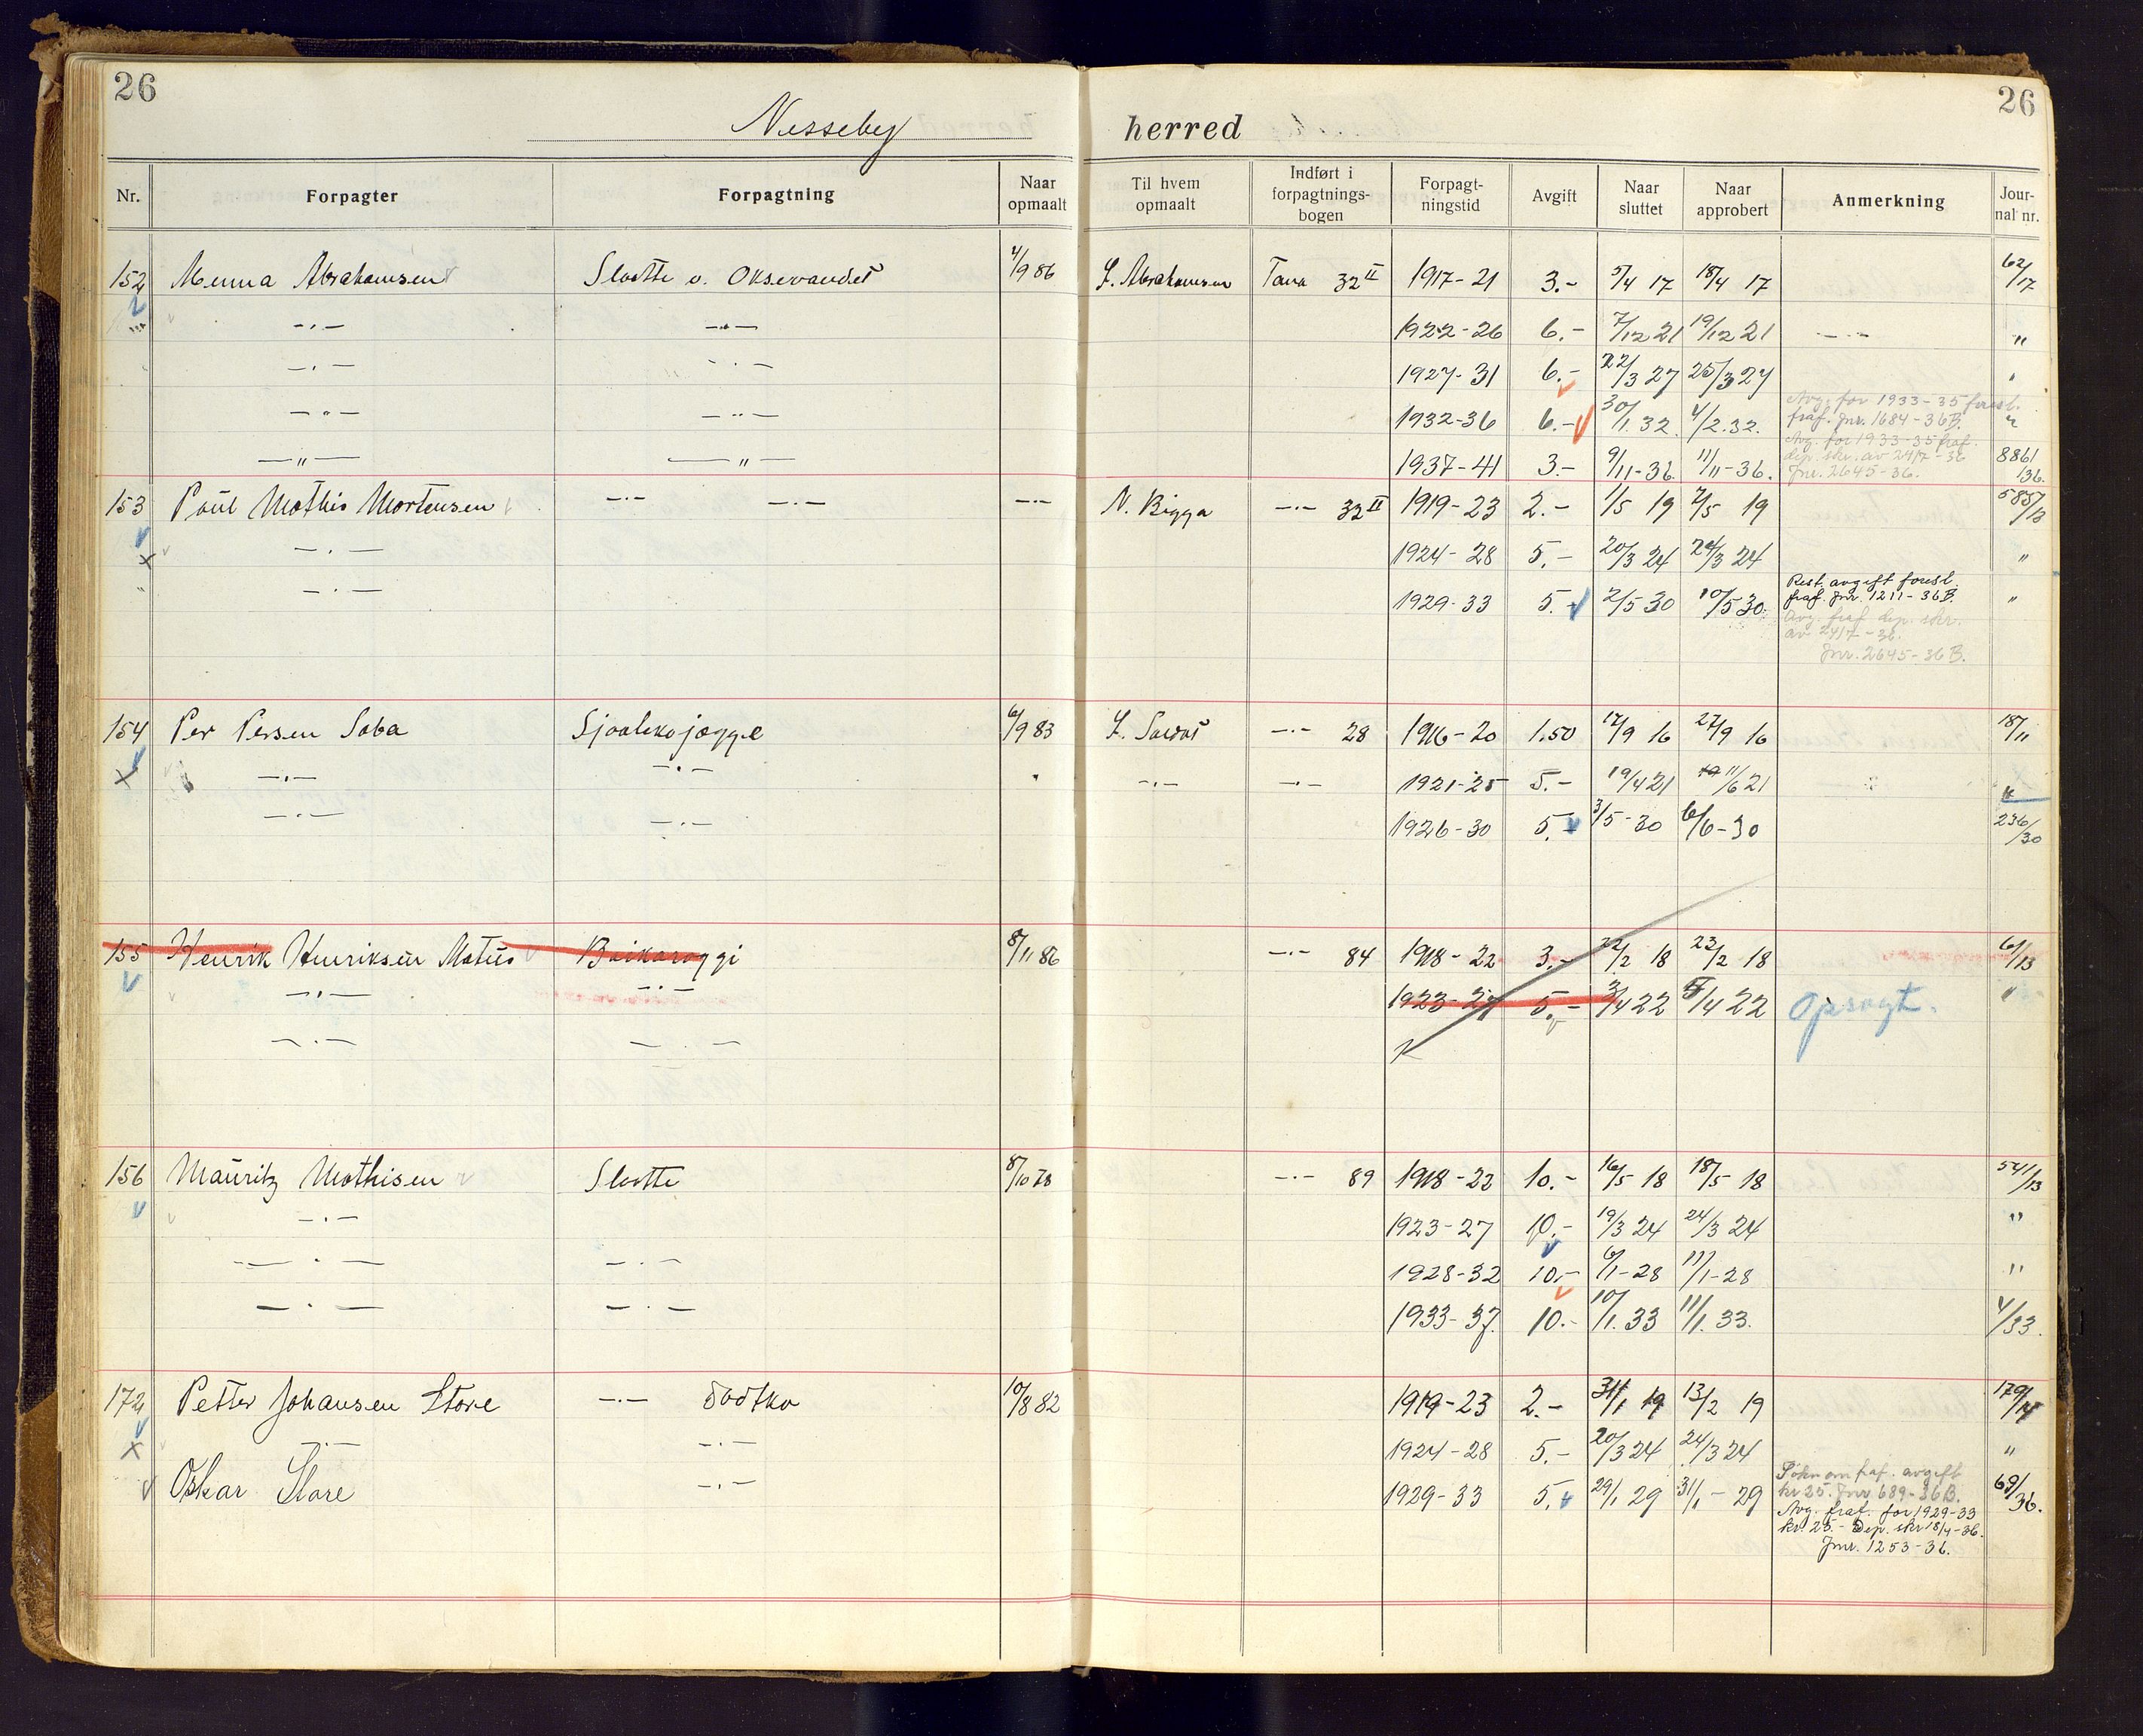 26
26
Nesseby herred
Nr. Forpagter Forpagtning Naar opmaalt Til hvem opmaalt Indført i forpagtnings-bogen Forpagt-ningstid Avgift Naar sluttet Naar approbert Anmerkning Jour-nal nr.
152 Menna Abrahamsen Slaatte v. Oksevandet 4/9 86 L. Abrahamsen Tana 32 II 1917-21 3.- 5/4 17 18/4 17 62/17
-"- -"- 1922-26 6.- 7/12 21 19/12 21 -"- "
-"- -"- 1927-31 6.- 22/3 27 25/3 27 "
-"- -"- 1932-36 6.- 30/1.32 4/2.32. Avg. for 1933-35 foresl. fraf. Jnr. 1684-36B. "
-"- -"- 1937-41 3.- 9/11-36 11/11-36. Avg. for 1933-35 fraf. dep. skr. av 24/7-36 Jnr. 2645-36. 8861/36.
153 Paul Mathis Mortensen -"- -"- -"- N. Bigga -"- 32 II 1919-23 2.- 1/5 19 2/5 19 5857/13
-"- 1924-28 5.- 20/3 24 24/3 24 "
-"- 1929-33 5.- 2/5 30 10/5 30. Rest. avgift foresl. fraf. Jnr. 1211-36B. "
Avg. fraf dep. skr.
av 24/7-36.
Jnr. 2645-36B.
154 Per Persen Saba Sjaalekojægge 6/9 83 -"- 28 1916-20 1.50 17/9 16 27/9 16 187/11
-"- -"- " -"- -"- 1921-25 5.- 19/4 21 11/6 21 "
-"- -"- 1926-30 5.- 3/5-30 6/6-30 236/30
155 Henrik Henriksen Matus Baikaroggi 8/11 86 -"- 84 1918-22 3.- 22/2 18 23/2 18 6/13
-"- -"- 1923-27 5.- 3/4 22 5/4 22 Opsagt. "
-"- -"-
156 Mauritz Mathisen Slaatte 8/10 78 -"- 89 1918-22 10.- 16/5 18 18/5 18 54/13
-"- 1923-27 10.- 19/3 24 24/3 24 "
-"- -"- 1928-32 10.- 6/1-28 11/1-28 "
-"- -"- 1933-37. 10.- 10/1.33 11/1.33. 4/33.
172 Petter Johansen Store -"- 10/8 82 1919-23 2.- 31/1 19 13/2 19 179/14
-"- -"- 1924-28 5.- 20/3 24 24/3 24 "
Oskar Store -"- 1929-33 5.- 29/1 29 31/1-29 Søkn om fraf. avgift kr 25. Jnr 689-36B. 69/36.
Avg. fraf. for 1929-33
kr. 25.- Dep. skr 18/4-36.
Jnr. 1253-36.